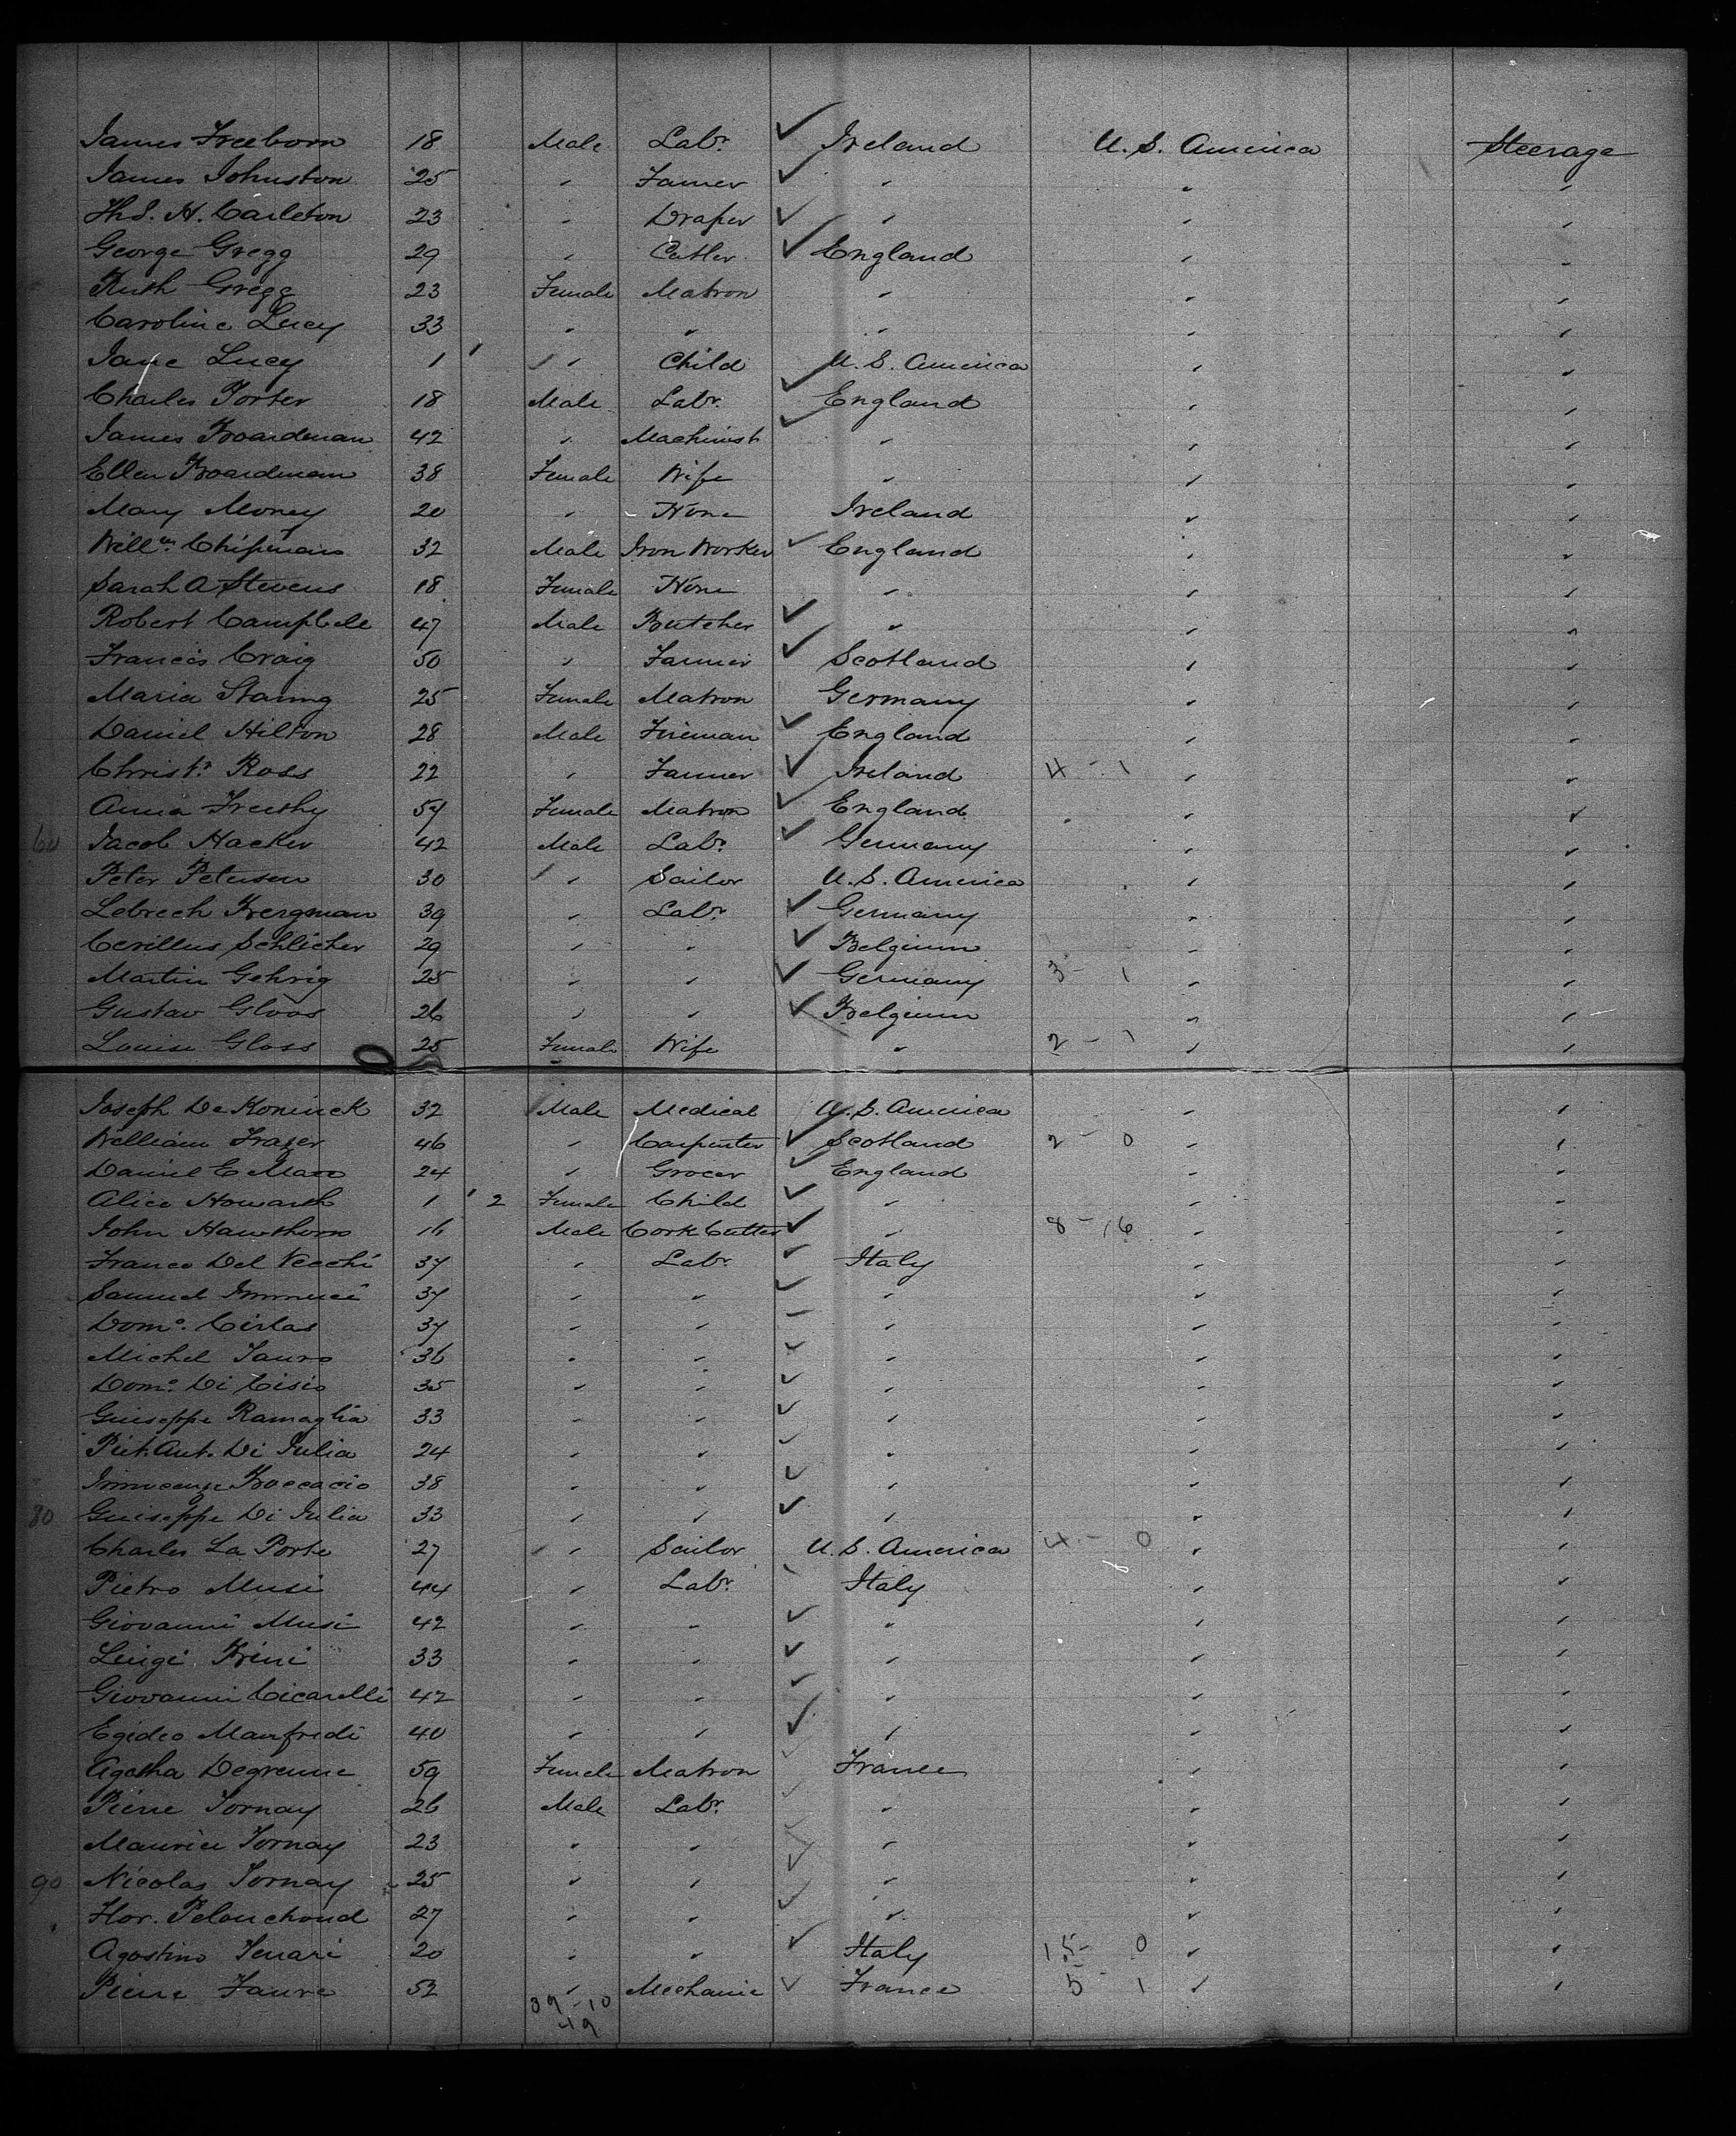 James Freeborn 18 Male Labr. Ireland U. S. America Steerage
James Johnston 25 " Farmer " " "
ThS. H. Carleton 23 " Draper " " "
George Gregg 29 " Cutler England " "
Ruth Gregg 23 Female Matron " " "
Caroline Lucy 33 " " " " "
Jane Lucy 1 " Child U. S. America " "
Charles Porter 18 Male Labr. England " "
James Boardman 42 " Machinist " " "
Ellen Boardman 38 Female Wife " " "
Mary Money 20 " None Ireland " "
Willm. Chipman 32 Male Iron Worker England " "
Sarah A Stevens 18 Female None " " "
Robert Campbell 47 Male Butcher " " "
Francis Craig 50 " Farmer Scotland " "
Maria 25 Female Matron Germany " "
Daniel Hilton 28 Male Fireman England " "
Christr. Ross 22 " Farmer Ireland 4 - 1 " "
Anna 54 Female Matron England " "
60 Jacob Hacker 42 Male Labr. Germany " "
Peter Petersen 30 " Sailor U. S. America " "
Lebrech Bergman 39 " Labr. Germany " "
Cerillus Schlicher 29 " " Belgium " "
Martin Gehrig 25 " " Germany 3 - 1 " "
Gustav Gloos 26 " " Belgium " "
Louise Gloss 25 Female Wife " 2 - 1 " "
Joseph De Koninck 32 Male Medical U. S. America " "
William Frazer 46 " Carpenter Scotland 2 - 0 " "
Daniel E Mace 24 " Grocer England " "
Alice Howarth 1 2 Female Child " " "
John Hawthorn 16 Male Cork Cutter " 8 - 16 " "
Franco Del Vecchi 37 " Labr. Italy " "
Samuel 37 " " " " "
Domo. 37 " " " " "
Michel Tauro 36 " " " " "
Domo. Di Cisio 35 " " " " "
Guiseppe Ramaglia 33 " " " " "
Piet. Ant. Di Julia 24 " " " " "
Innocenzo Boccacio 38 " " " " "
80 Guiseppe Di Julia 33 " " " " "
Charles La Porte 27 " Sailor U. S. America 4 - 0 " "
Pietro Musi 44 " Labr. Italy " "
Giovanni Musi 42 " " " " "
Luigi Brini 33 " " " " "
Giovanni Cicarelli 42 " " " " "
Egidio Manfredi 40 " " " " "
Agatha Degrenne 59 Female Matron France " "
Pierre Tornay 26 Male Labr. " " "
Maurice Tornay 23 " " " " "
90 Nicolas Tornay 25 " " " " "
Flor. Pelouchoud 27 " " " " "
Agostino Ferrari 20 " " Italy 15 - 0 " "
Pierre Faure 52 " Mechanic France 5 - 1 " "
39 - 10
49